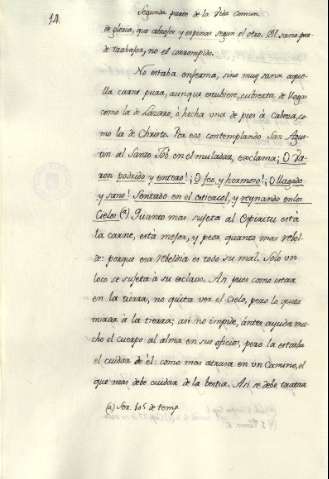 14.
Segunda parte de la Vida comun
de gloria, que abrojos y espinas segun el otro. Al sano pue-
de trabajos, no el corrompido.
No estaba enferma, sino muy sana aque-
lla carne pura, aunque estubiese cubierta de llagas
como la de Lazaro, ó hecha una de pies à Cabeza, co-
mo la de Christo. Por eso contemplando San Agus-
tin al Santo Job en el muladar, exclama: ¡O Va-
ron podrido y entero! ¡O feo, y hermoso! ¡O llagado
y sano! Sentado en el estiercol, y reynando en los
Cielos (a) Quanto mas sujeta al Espiritu está
la carne, está mejor, y peor quanto mas rebel-
de: porque esa rebeldia es todo su mal. Solo un
loco se sujeta à su esclavo. Asi pues como estar
en la tierra, no quita ver el Cielo, pero lo quita
mirar à la tierra; asi no impide, ántes ayuda mu-
cho el cuerpo al alma en sus oficios, pero la estorba
el cuidar de él: como mas atrasa en un Camino, el
que mas debe cuidar de la bestia. Asi se debe tratar
(a) Ser. 105 de temp.